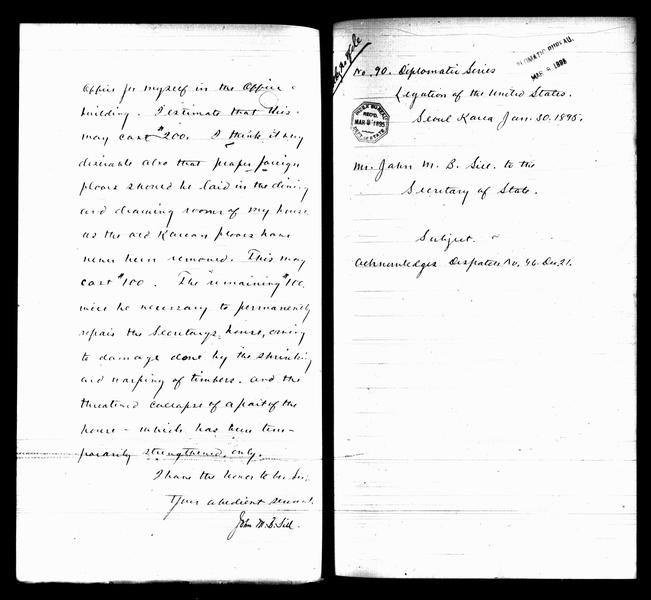 office for myself in the Office
building. I estimate that this
may cost $200. I think it very
desirable also that proper foreign
floors should be laid in the dining
and drawing rooms of my house
as the old Korean floors have
never been removed. This may
cost $100. The remaining $100,
will be necessary to permanently
repair the Secretary's house, owing
to damage done by the shrinking
and warping of timbers. and the
threatened collapse of a part of the
house - which has been tem-
porarily strengthened, only.
I have the honor to be, Sir,
Your obedient servant.
John M. B. Sill.
DIPLOMATIC BUREAU.
MAR 8, 1895
No. 90. Diplomatic Series
Legation of the United States.
Seoul Korea Jan. 30. 1895.
INDEX BUREAU
REC'D.
MAR 8 1895
DEPT. OF STATE
Mr. John M. B. Sill. to the
Secretary of State.
Subject.
Acknowledges Dispatch No. 46. Dec. 21.